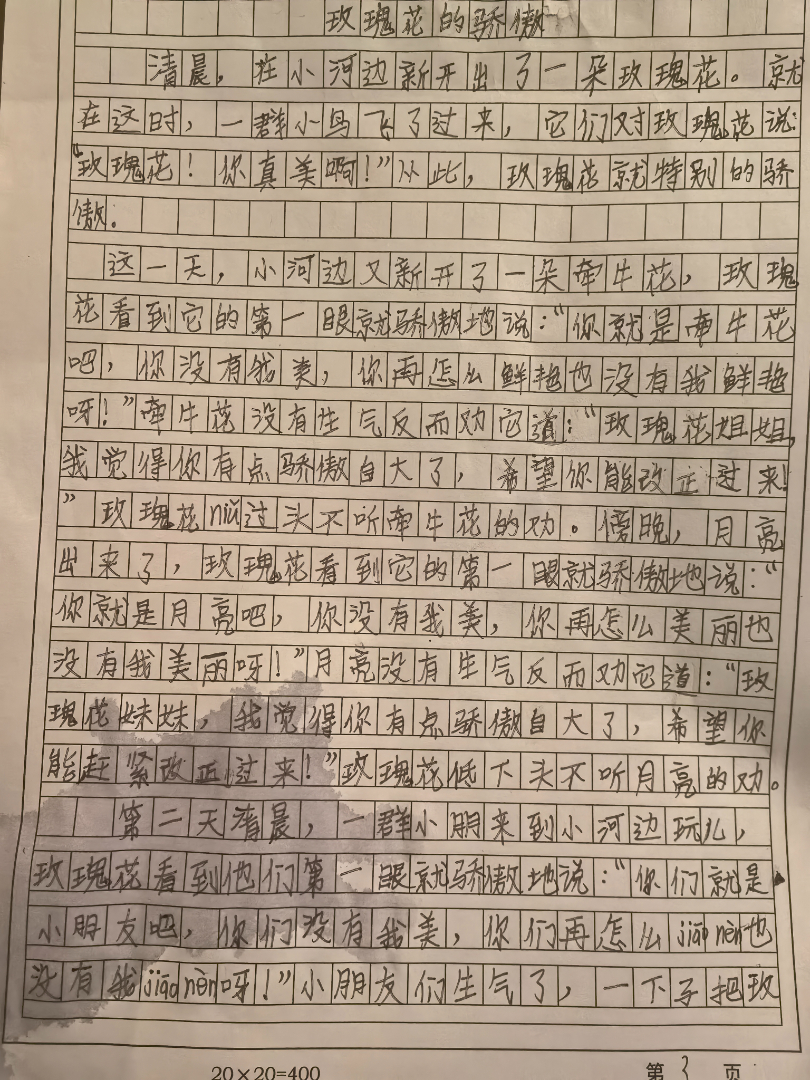 玫瑰花的骄傲
清晨，在小河边新开出了一朵玫瑰花。就
在这时，一群小鸟飞了过来，它们对玫瑰花说：
“玫瑰花！你真美啊！”从此，玫瑰花就特别的骄
傲。
这一天，小河边又新开了一朵牵牛花，玫瑰
花看到它的第一眼就骄傲地说：“你就是牵牛花
吧，你没有我美，你再怎么鲜艳也没有我鲜艳
呀！”牵牛花没有生气反而劝它道：“玫瑰花姐姐，
我觉得你有点骄傲自大了，希望你能改正过来！
”玫瑰花niǔ过头不听牵牛花的劝。傍晚，月亮
出来了，玫瑰花看到它的第一眼就骄傲地说：“
你就是月亮吧，你没有我美，你再怎么美丽也
没有我美丽呀！”月亮没有生气反而劝它道：“玫
瑰花妹妹，我觉得你有点骄傲自大了，希望你
能赶紧改正过来！”玫瑰花低下头不听月亮的劝。
第二天清晨，一群小朋来到小河边玩儿，
玫瑰花看到他们第一眼就骄傲地说：“你们就是
小朋友吧，你们没有我美，你们再怎么jiāo nèn也
没有我jiāo nèn呀！”小朋友们生气了，一下子把玫
20×20=400
第3页